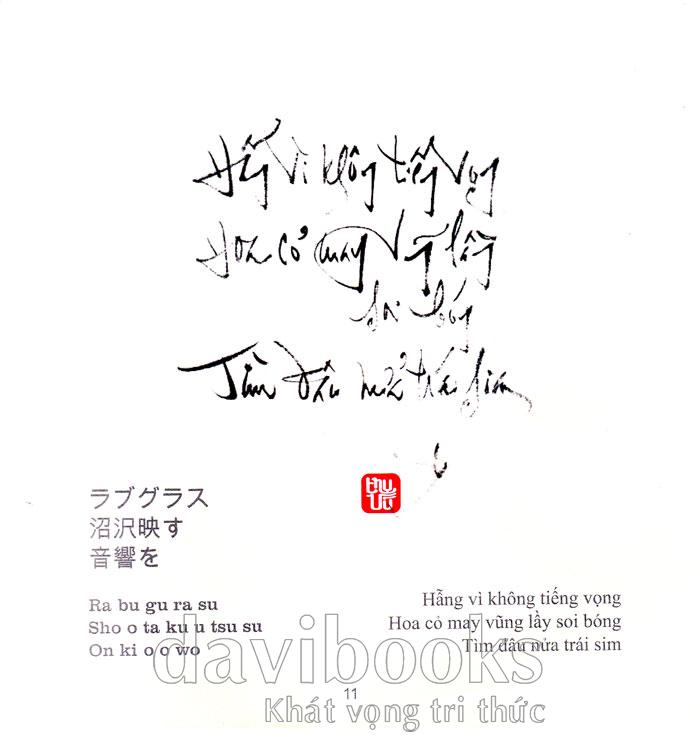 Hẫng vì không tiếng vọng
Hoa cỏ may vũng lầy
soi bóng
Tìm đâu nửa trái sim
ラブグラス
沼沢映す
音響を
Ra bu gu ra su
Sho o ta ku u tsu su
On ki o o wo
Hẫng vì không tiếng vọng
Hoa cỏ may vũng lầy soi bóng
Tìm đâu nửa trái sim
davibooks
11
Khát vọng tri thức